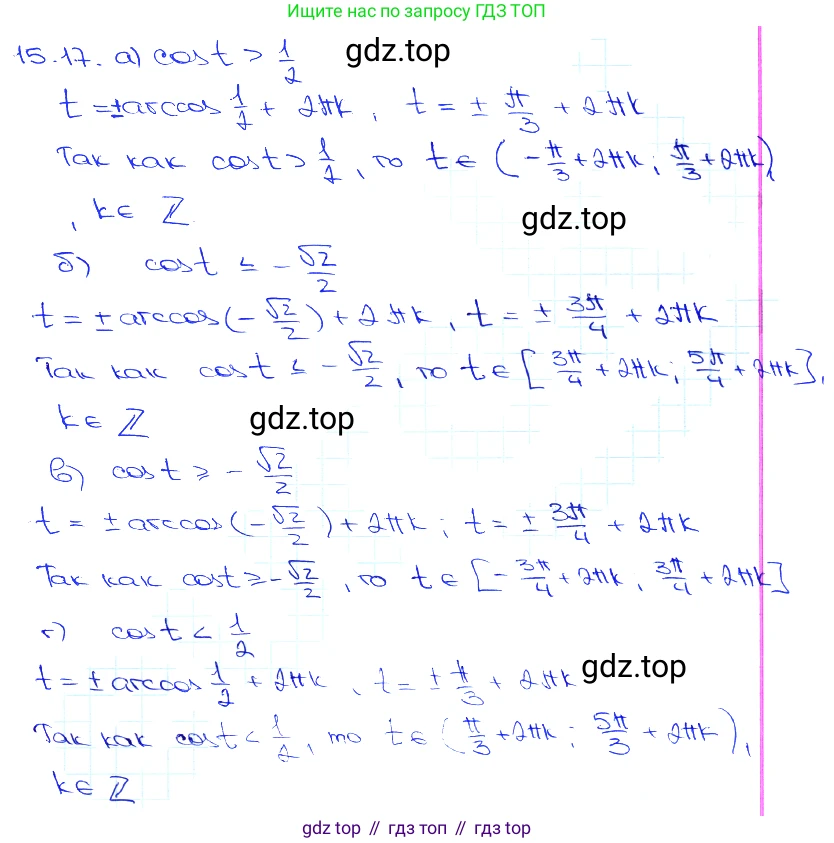 Ищите нас по запросу ГДЗ ТОП
15.17. а) cos t > 1/2
gdz.top
t = ± arccos 1/2 + 2πk, t = ± π/3 + 2πk
Так как cos t > 1/2, то t ∈ (-π/3 + 2πk; π/3 + 2πk)
, k ∈ ℤ
gdz.top
б) cos t ≤ -√2/2
t = ± arccos(-√2/2) + 2πk, t = ± 3π/4 + 2πk
Так как cos t ≤ -√2/2, то t ∈ [3π/4 + 2πk; 5π/4 + 2πk],
k ∈ ℤ
gdz.top
в) cos t ≥ -√2/2
t = ± arccos(-√2/2) + 2πk; t = ± 3π/4 + 2πk
Так как cos t ≥ -√2/2, то t ∈ [-3π/4 + 2πk, 3π/4 + 2πk]
г) cos t < 1/2
t = ± arccos 1/2 + 2πk, t = ± π/3 + 2πk
gdz.top
Так как cos t < 1/2, то t ∈ (π/3 + 2πk; 5π/3 + 2πk),
k ∈ ℤ
gdz top // гдз топ // гдз top